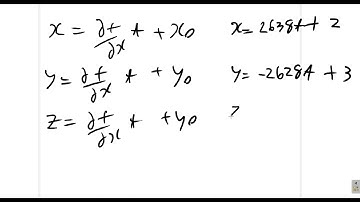 x = ∂f/∂x t + x0 x = 2638t + 2
y = ∂f/∂x t + y0 y = -2628t + 3
z = ∂f/∂x t + y0 z